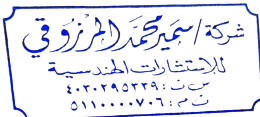 شركة / سمير محمد المرزوقي
للاستشارات الهندسية
س ت : ٤٠٣٠٢٩٥٣٣٩
ت م : ٥١١٠٠٠٠٧٠٦